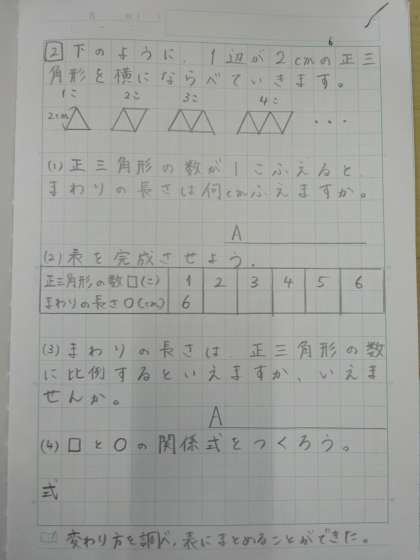 2 下のように、1辺が2cmの正三
角形を横にならべていきます。
1こ 2こ 3こ 4こ
2cm ・・・
(1) 正三角形の数が1こふえると、
まわりの長さは何cmふえますか。
A
(2) 表を完成させよう。
正三角形の数□(こ) 1 2 3 4 5 6
まわりの長さ○(cm) 6
(3) まわりの長さは、正三角形の数
に比例するといえますか、いえま
せんか。
A
(4) □と○の関係式をつくろう。
式
変わり方を調べ、表にまとめることができた。